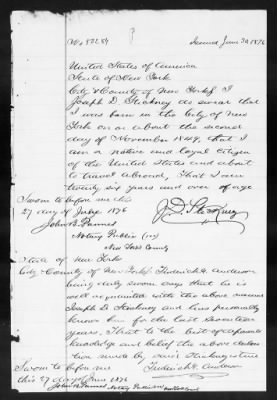 No 53254 Issued June 30 1876
United States of America
State of New York
City & County of New York } I
Joseph D. Stickney do swear that
I was born in the City of New
York on or about the second
day of November 1849 that I
am a native and loyal citizen
of the United States and about
to travel abroad, that I am
twenty six years and over of age
Sworn to before me this
27 day of June 1876 J. D. Stickney
John B. Notary Public
New York County
State of New York
City County of New York } Frederick G. Anderson
being duly sworn says that he is
well acquainted with the above named
Joseph D. Stickney and has personally
known him for the last
years, that to the best of
knowledge and belief the above
made by said Stickney is true
Sworn to before Frederick G. Anderson
me this 27 day of June 1876
John B. Notary Public